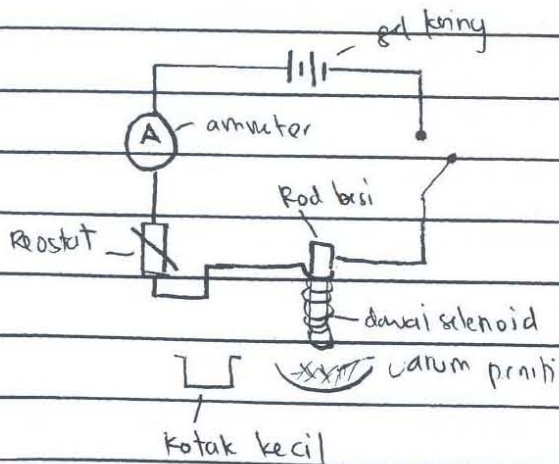 sel kering
A
ammeter
Rod besi
Reostat
dawai selenoid
Jarum peniti
kotak kecil